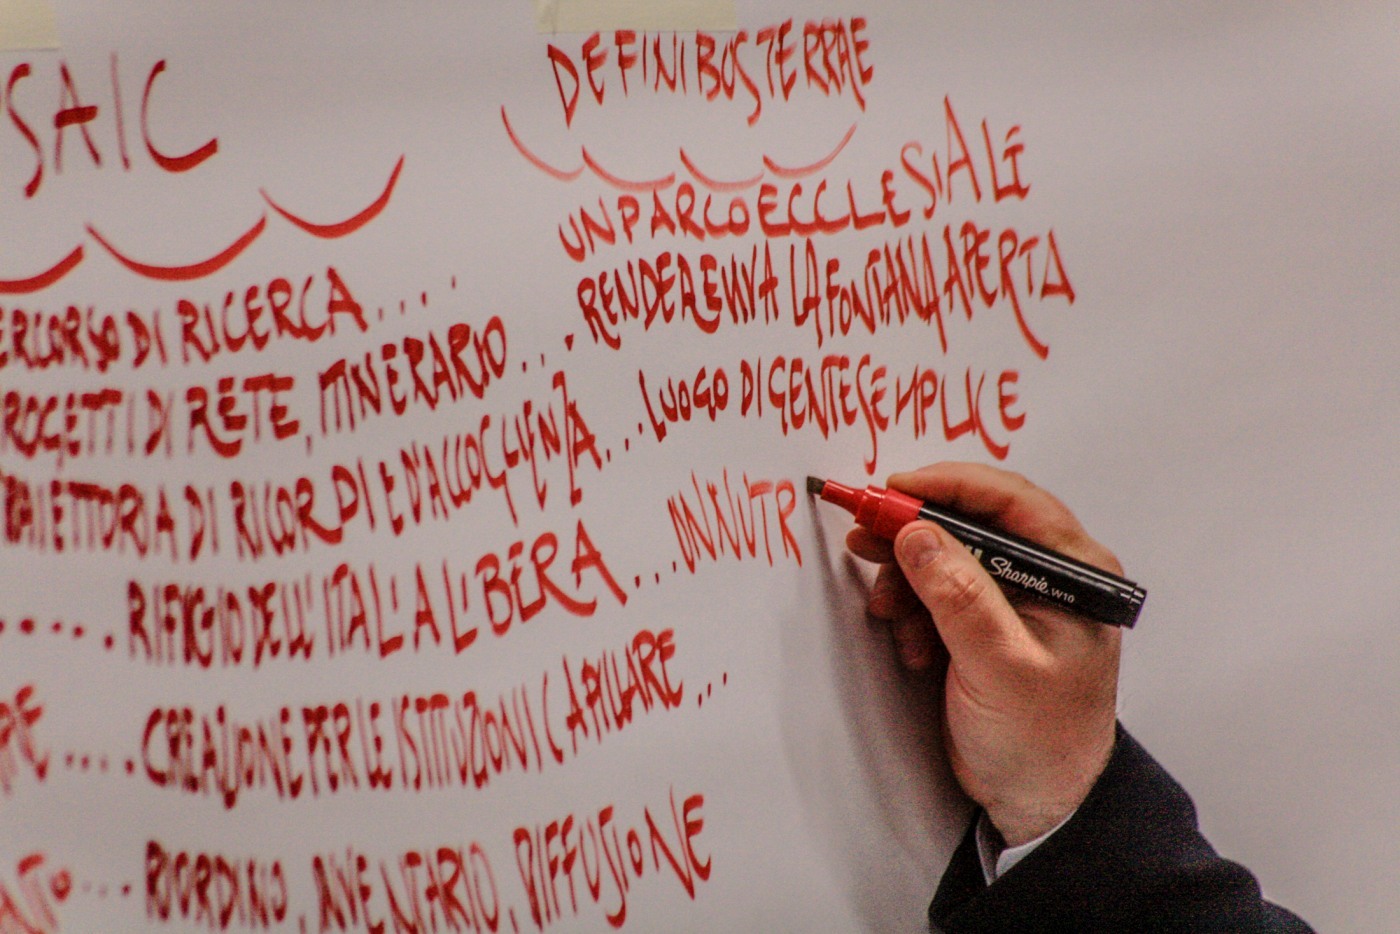 SAIC
DEFINIBUS TERRAE
UN PARCO ECCLESIALE
RENDERE VIVA LA FONTANA APERTA
ERCORSO DI RICERCA....
ROGETTI DI RETE, ITINERARIO...
LUOGO DI GENTE SEMPLICE
RAIETTORIA DI RICORDI E D'ACCOGLIENZA...
INNUTR
.....RIFUGIO DELL'ITALIA LIBERA...
....CREAZIONE PER LE ISTITUZIONI CAPILLARE...
...RIORDINO, INVENTARIO, DIFFUSIONE
Sharpie W10